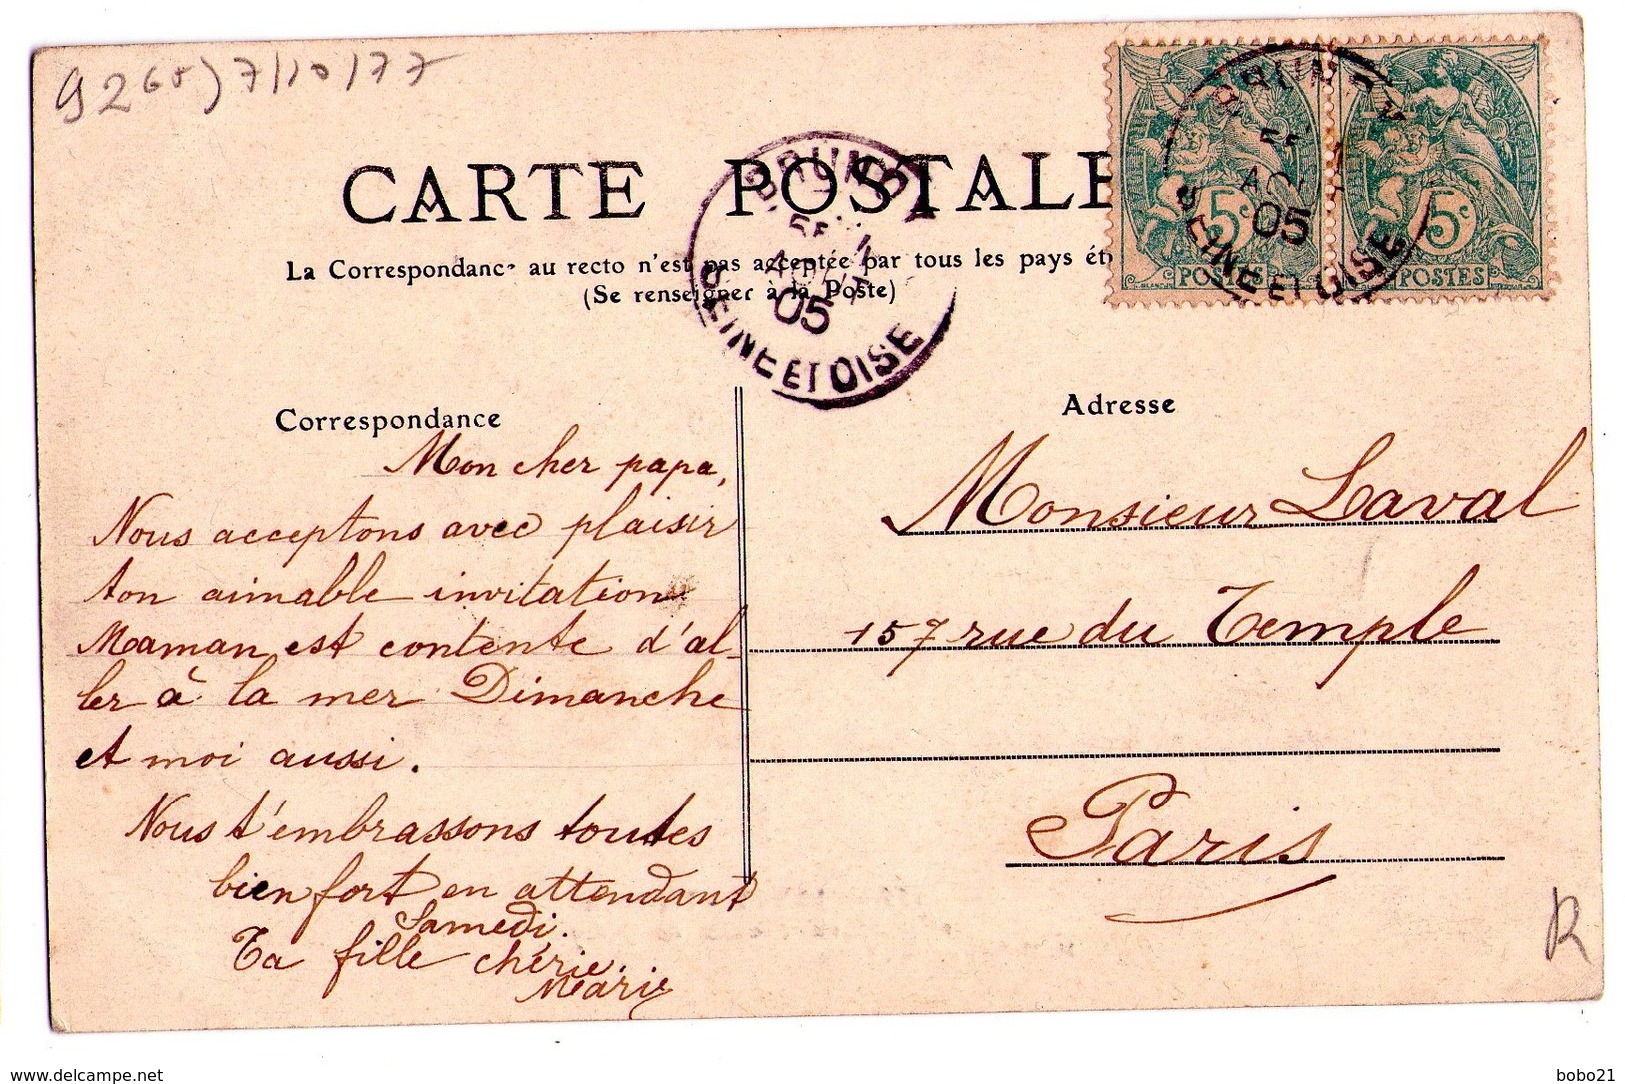 9265) 7/10/77
CARTE POSTALE
La Correspondance au recto n'est pas acceptée par tous les pays ét
(Se renseigner à la Poste)
BRUNOY
05
SEINE ET OISE
BRUNOY
05
SEINE ET OISE
5c
POSTES
5c
POSTES
Correspondance
Mon cher papa,
Nous acceptons avec plaisir
ton aimable invitation
Maman est contente d'al-
ler à la mer Dimanche
et moi aussi.
Nous t'embrassons toutes
bien fort en attendant
Samedi.
Ta fille chérie.
Marie
Adresse
Monsieur Laval
157 rue du Temple
Paris
R
www.delcampe.net
bobo21